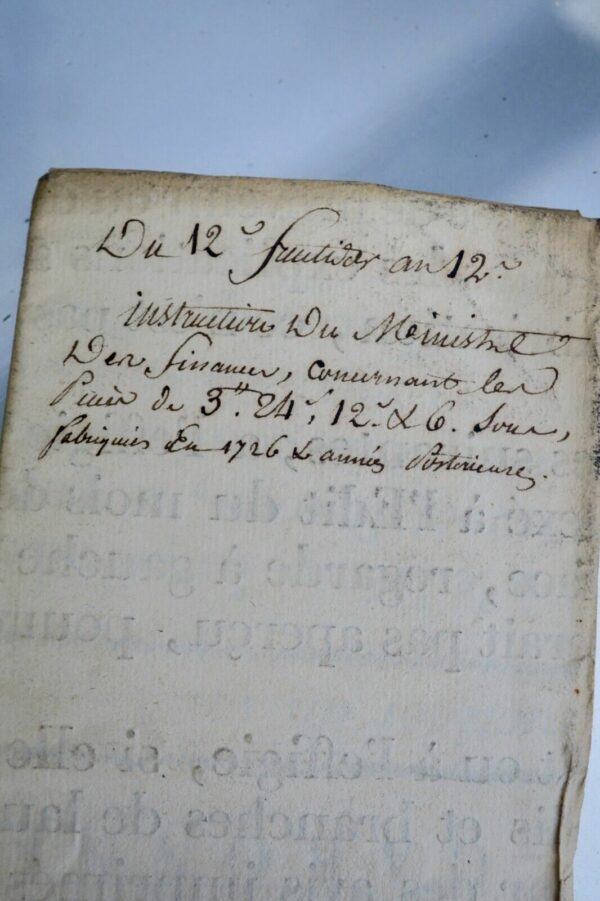 Du 12.e fructidor an 12.e
instruction Du Ministre
Des finances, concernant les
Pieces de 3.tt 24.s, 12.s & 6. Sous,
fabriquées En 1726 & années Postérieures.
exé à l'Edit du mois de
nce, regarde à gauche
rait pas aperçu, pour
t eu à l'effigie, si elle
is et branches de lau
des avis imprimés